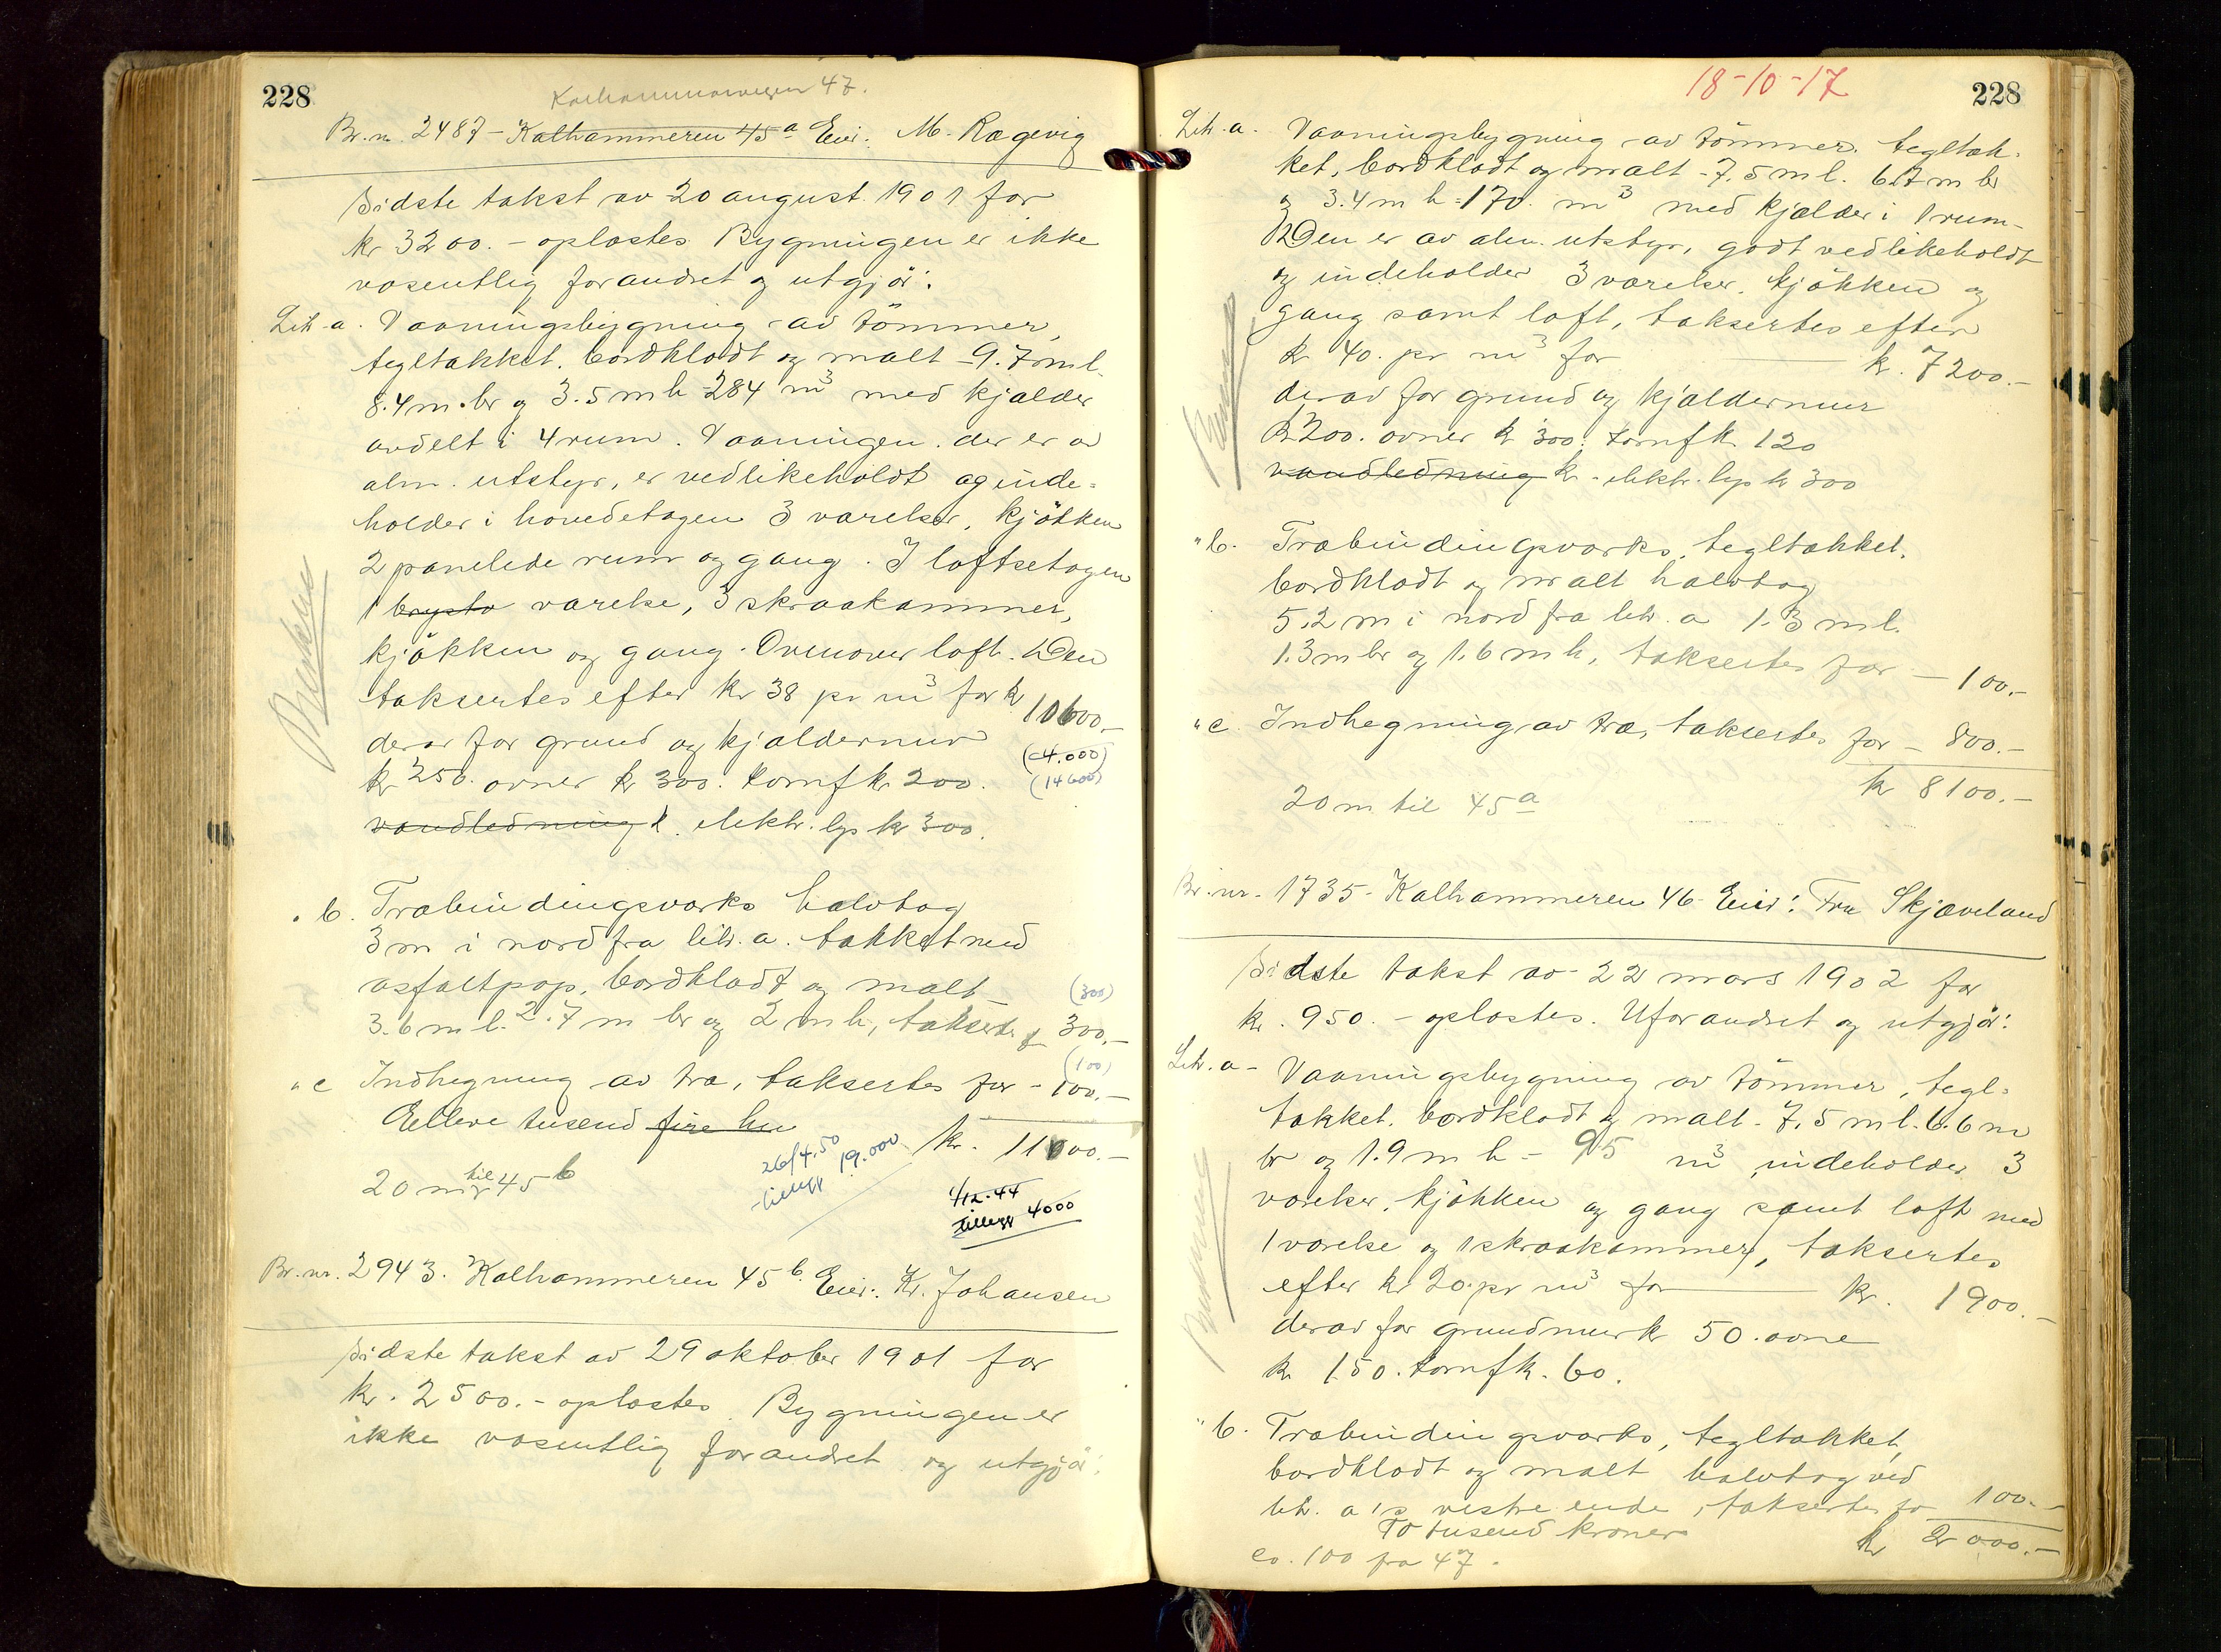 228
Kalhammerveien 47.
Br.nr. 2487 - Kalhammeren 45a Eier: M. Rægevig
Sidste takst av 20 august 1901 for
kr 3200.- opløstes. Bygningen er ikke
væsentlig forandret og utgjör:
Litr. a. Vaaningsbygning av tömmer,
tegltækket, bordklædt og malt - 9.7 m l.
8.4 m. br og 3.5 m h - 284 m3 med kjælder
avdelt i 4 rum. Vaaningen der er av
alm. utstyr, er vedlikeholdt og inde-
holder i hovedetagen 3 værelser, kjökken
2 panelede rum og gang. I loftsetagen
1 brysto værelse, 3 skraakammer,
kjökken og gang. Ovenover loft. Den
taksertes efter kr 38 pr m3 for kr 10600.-
derav for grund og kjældermur
(4.000)
kr 250. ovner kr 300. komf kr 200.
(14600)
vandledning k. elektr. lys kr 300.
" b. Træbindingsværks halvtag
3 m i nord fra litr. a. tækket med
asfaltpap, bordklædt og malt
(300)
3.6 m l. 2.7 m br og 2 m h, taksert f 300.-
(100)
" c Indhegning av træ, taksertes for - 100.-
Elleve tusend fire hu
kr. 11000.-
20 m til 45b
26/4.50
tillegg 19.000
1/12.44
tillegg 4000
Br.nr. 2943. Kalhammeren 45b. Eier: Kr. Johansen
Sidste takst av 29 oktober 1901 for
kr. 2500.- opløstes. Bygningen er
ikke væsentlig forandret og utgjör:
18-10-17
228
Litr. a. Vaaningsbygning av tömmer, tegltæk-
ket, bordklædt og malt - 7.5 m l. 6.7 m br
og 3.4 m h = 170. m3 med kjælder i 1 rum.
Den er av alm. utstyr, godt vedlikeholdt
og indeholder 3 værelser, kjökken og
gang samt loft, taksertes efter
kr 40. pr m3 for kr. 7200.-
derav for grund og kjældermur
kr 200. ovner kr 300. komf k. 120
vandledning k. elektr. lys kr 300
" b. Træbindingsværks, tegltækket,
bordklædt og malt halvtag
5.2 m i nord fra litr. a 1.3 m l.
1.3 m br og 1.6 m h, taksertes for - 100.-
" c. Indhegning av træ, taksertes for - 800.-
kr 8100.-
20 m til 45a
Br.nr. 1735 - Kalhammeren 46 Eier: Fru Skjæveland
Sidste takst av 22 mars 1902 for
kr. 950.- opløstes. Uforandret og utgjör:
Litr. a - Vaaningsbygning av tömmer, tegl-
tækket, bordklædt og malt - 7.5 m l. 6.6 m
br og 1.9 m h - 95 m3 indeholder 3
værelser, kjökken og gang samt loft med
1 værelse og 1 skraakammer, taksertes
efter kr 20. pr m3 for kr. 1900.-
derav for grundmur kr 50. ovne
kr 150. komf k. 60.
" b. Træbindingsværks, tegltækket,
bordklædt og malt halvtag ved
litr. a's vestre ende, taksertes for 100.-
To tusend kroner kr 2000.-
ca. 100 fra 47.